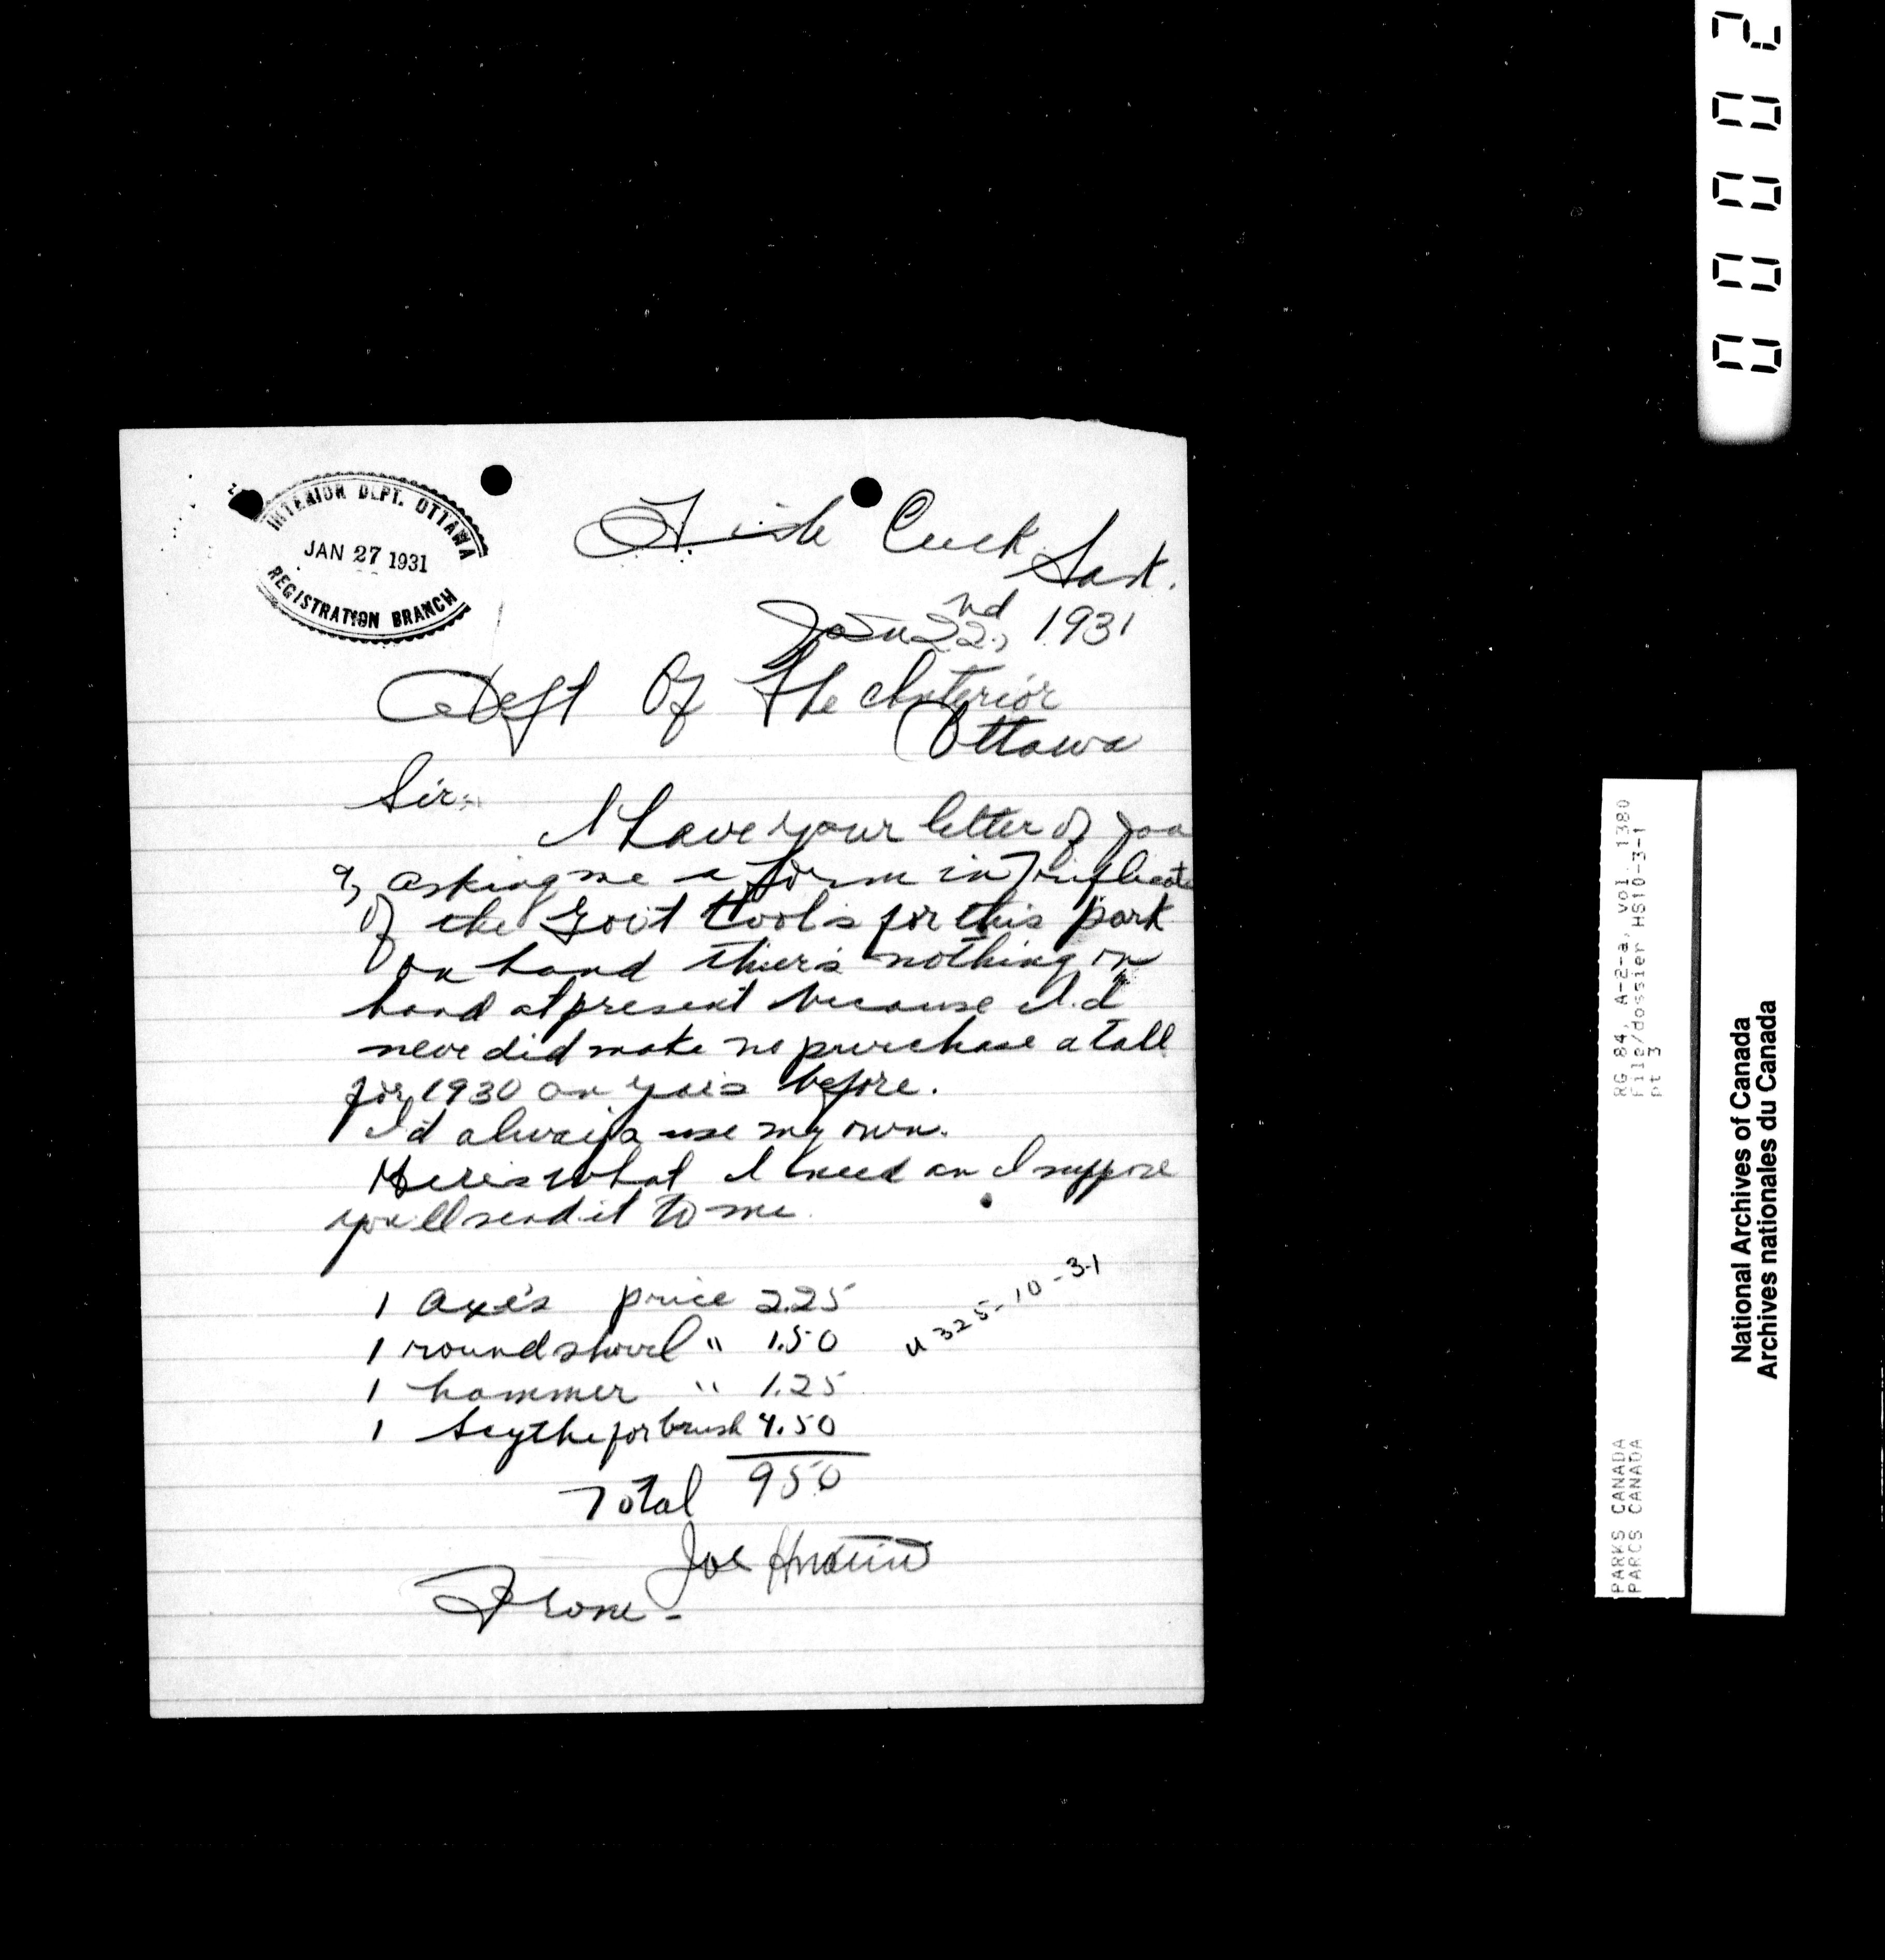 INTERIOR DEPT. OTTAWA
JAN 27 1931
REGISTRATION BRANCH
Fish Creek Sask.
Jan 22nd, 1931
Dept Of The Interior
Ottawa
Sir:
I have your letter of Jan
9, asking me a form in Triplicate
of the Gov't tool's for this park
on hand thier's nothing on
hand at present because I.d
neve did make no purchase atall
for 1930 an yeis before.
I'd always use my own.
Here's what I need an I suppose
you'll send it to me.
1 axe's price 2.25
1 round shovel " 1.50
1 hammer " 1.25
1 Scythe for brush 4.50
Total 950
U325-10-31
Joe
From -
00002
RG 84, A-2-a, vol 1380
File/dossier HS10-3-1
pt 3
PARKS CANADA
PARCS CANADA
National Archives of Canada
Archives nationales du Canada